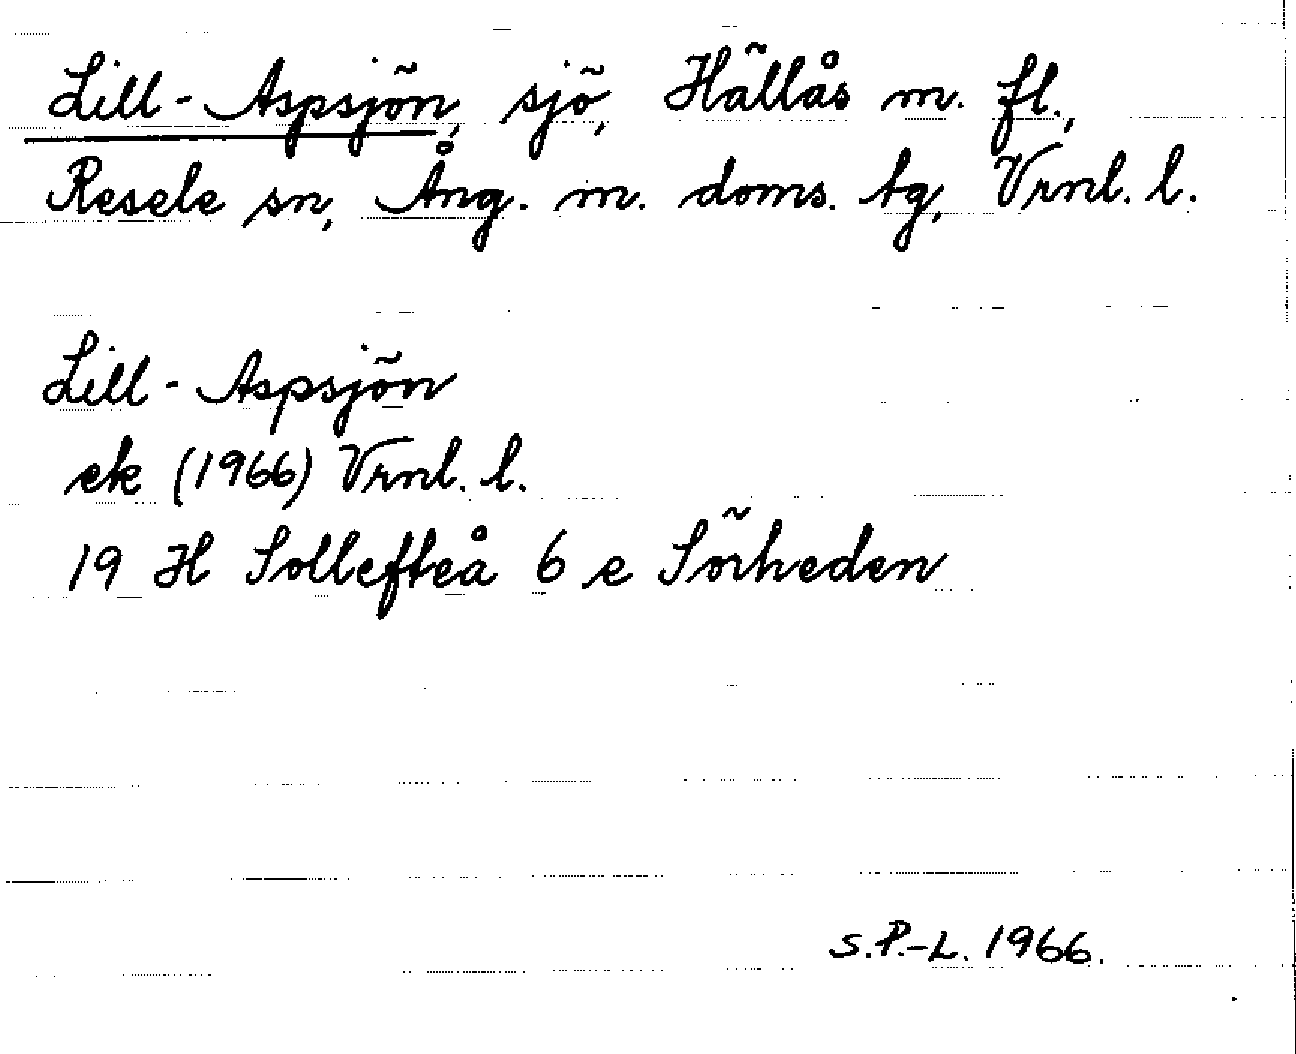 Lill-Aspsjön, sjö, Hällås m. fl.,
Resele sn, Ång. m. doms. tg, Vrnl. l.
Lill-Aspsjön
ek (1966) Vrnl. l.
19 H Sollefteå 6 e Sörheden
S.P.-L. 1966.